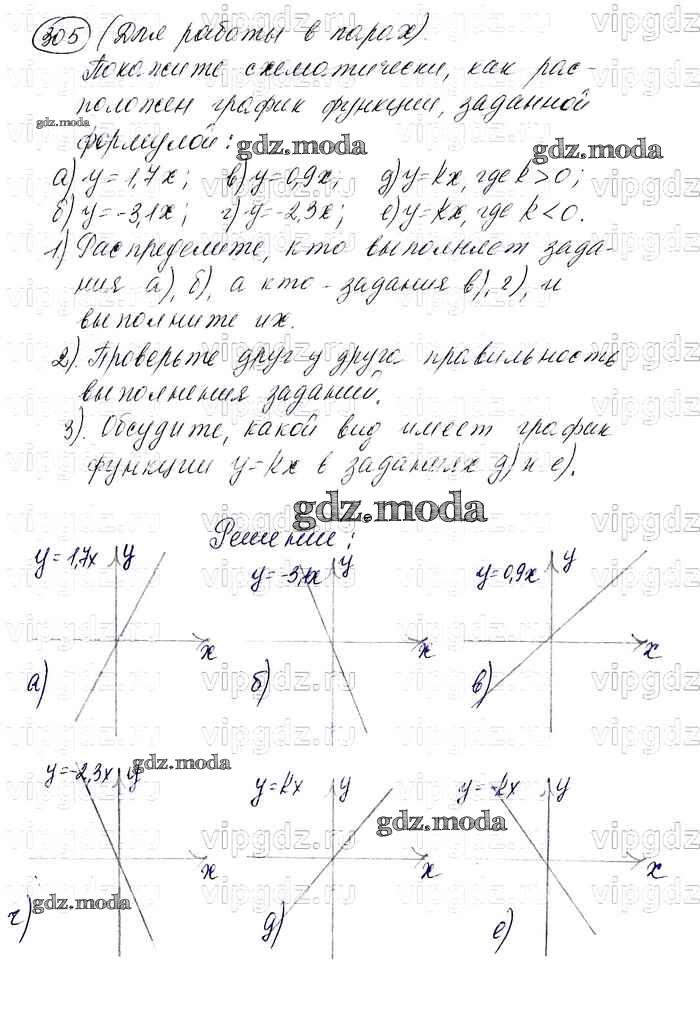 305 (Для работы в парах).
Покажите схематически, как рас-
положен график функции, заданной
gdz.moda
формулой:
gdz.moda
а) y=1,7x; в) y=0,9x; д) y=kx, где k>0;
б) y=-3,1x; г) y=-2,3x; е) y=kx, где k<0.
1) Распределите, кто выполняет зада-
ния а), б), а кто - задания в), г), и
выполните их.
2). Проверьте друг у друга правильность
выполнения заданий.
3). Обсудите, какой вид имеет график
функции y=kx в заданиях д) и е).
gdz.moda
Решение:
y=1,7x y y=-3,1x y y=0,9x y
x x x
а) б) в)
gdz.moda
y=-2,3x y y=kx y y=-kx y
gdz.moda
x x x
gdz.moda
г) д) е)
vipgdz.ru